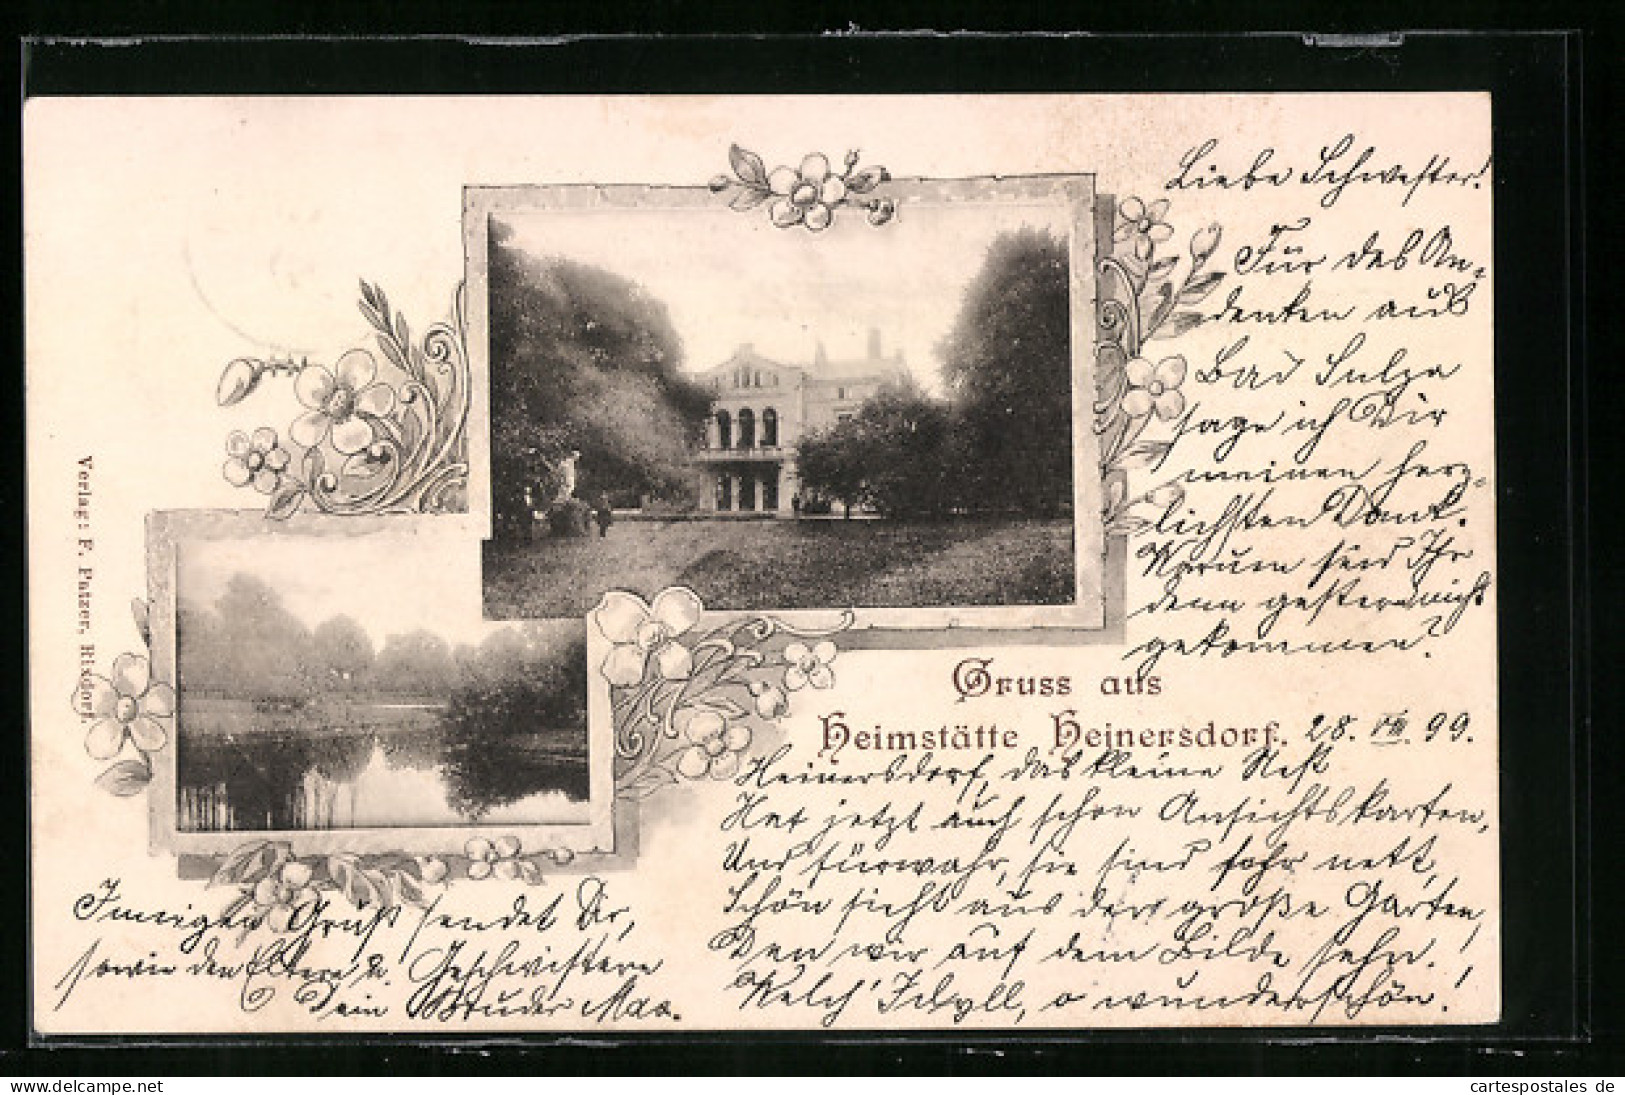 Liebe Schwester!
Für das An-
denken aus
Bad Sulza
sage ich Dir
meinen herz-
lichsten Dank.
Warum seid Ihr
denn gestern nicht
gekommen?
Verlag: F. Patzer, Rixdorf.
Gruss aus
Heimstätte Heinersdorf. 28. VIII. 99.
Heinersdorf, das kleine Nest
Hat jetzt auch schon Ansichtskarten,
Und fürwahr, sie sind sehr nett,
Schön sieht aus der große Garten,
Den wir auf dem Bilde sehn.
Welch' Idyll, o wunderschön!
Innigen Gruß sendet Dir,
sowie den Eltern u. Geschwistern
Dein Bruder Max.
cartespostales de